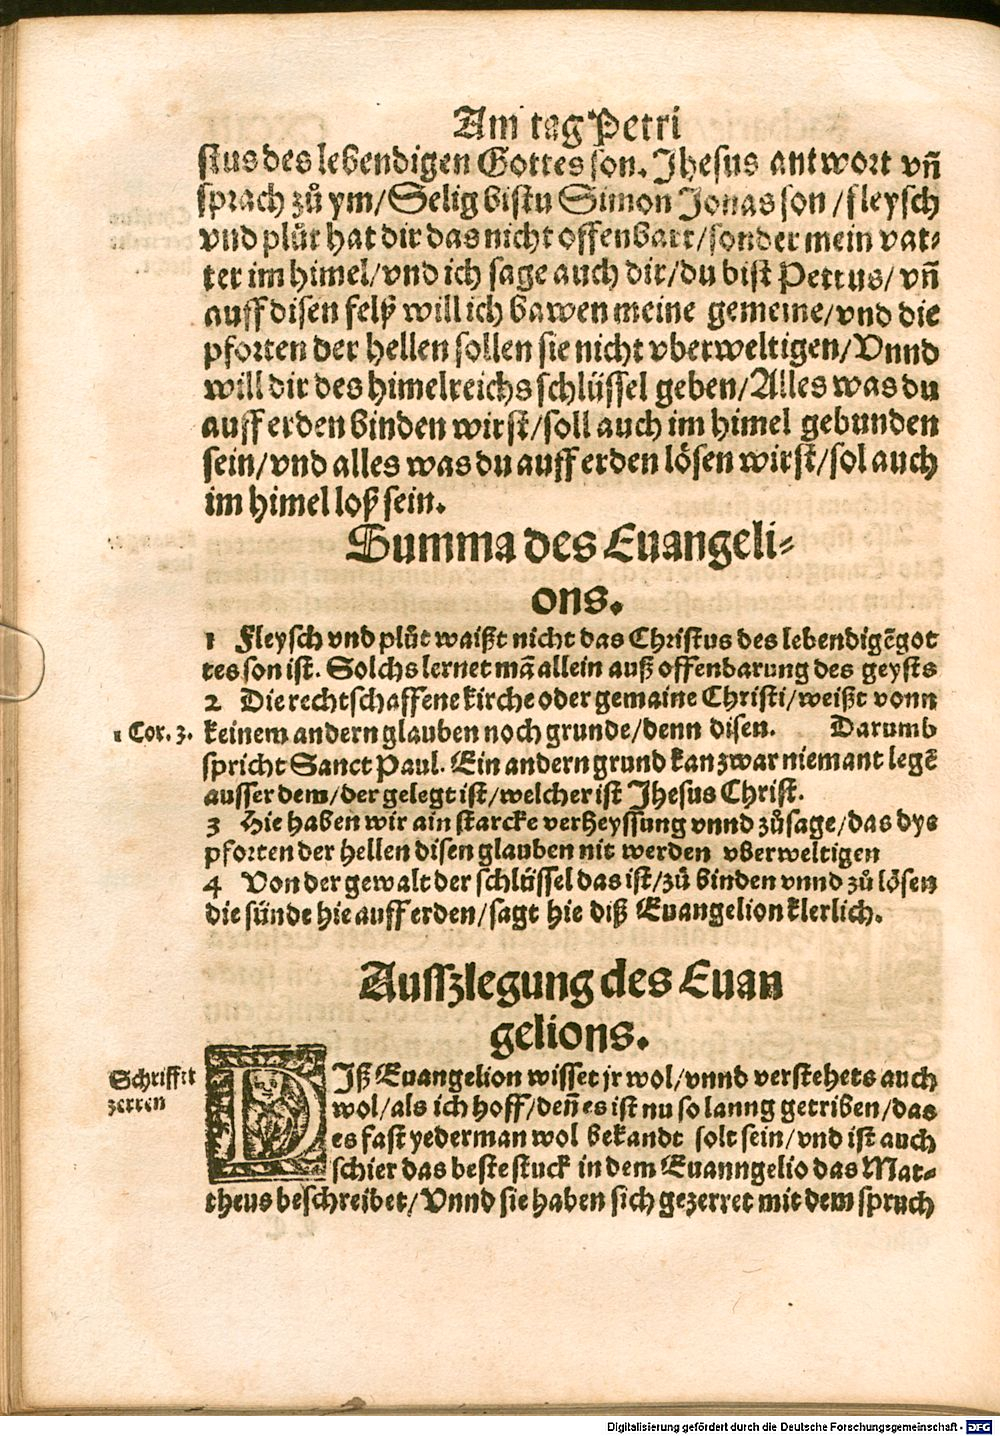 Am tag Petri
stus des lebendigen Gottes son. Jhesus antwort vñ
sprach zů ym/Selig bistu Simon Jonas son/fleysch
vnd plůt hat dir das nicht offenbart/sonder mein vat⸗
ter im himel/vnd ich sage auch dir/du bist Pettus/vñ
auff disen felß will ich bawen meine gemeine/vnd die
pforten der hellen sollen sie nicht vberweltigen/Vnnd
will dir des himelreichs schlüssel geben/Alles was du
auff erden binden wirst/soll auch im himel gebunden
sein/vnd alles was du auff erden lösen wirst/sol auch
im himel loß sein.
Summa des Euangeli⸗
ons.
1 Fleysch vnd plůt waißt nicht das Christus des lebendigẽ got
tes son ist. Solchs lernet mã allein auß offenbarung des geysts
2 Die rechtschaffene kirche oder gemaine Christi/weißt vonn
1 Cor. 3.
keinem andern glauben noch grunde/denn disen. Darumb
spricht Sanct Paul. Ein andern grund kan zwar niemant legẽ
ausser dem/der gelegt ist/welcher ist Jhesus Christ.
3 Hie haben wir ain starcke verheyssung vnnd zůsage/das dye
pforten der hellen disen glauben nit werden vberweltigen
4 Von der gewalt der schlüssel das ist/zů binden vnnd zů lösen
die sünde hie auff erden/sagt hie diß Euangelion klerlich.
Ausszlegung des Euan
gelions.
Schrifft
zerren
DIß Euangelion wisset jr wol/vnnd verstehets auch
wol/als ich hoff/deñ es ist nu so lanng getriben/das
es fast yederman wol bekandt solt sein/vnd ist auch
schier das beste stuck in dem Euanngelio das Mat⸗
theus beschreibet/Vnnd sie haben sich gezerret mit dem spruch
Digitalisierung gefördert durch die Deutsche Forschungsgemeinschaft - DFG